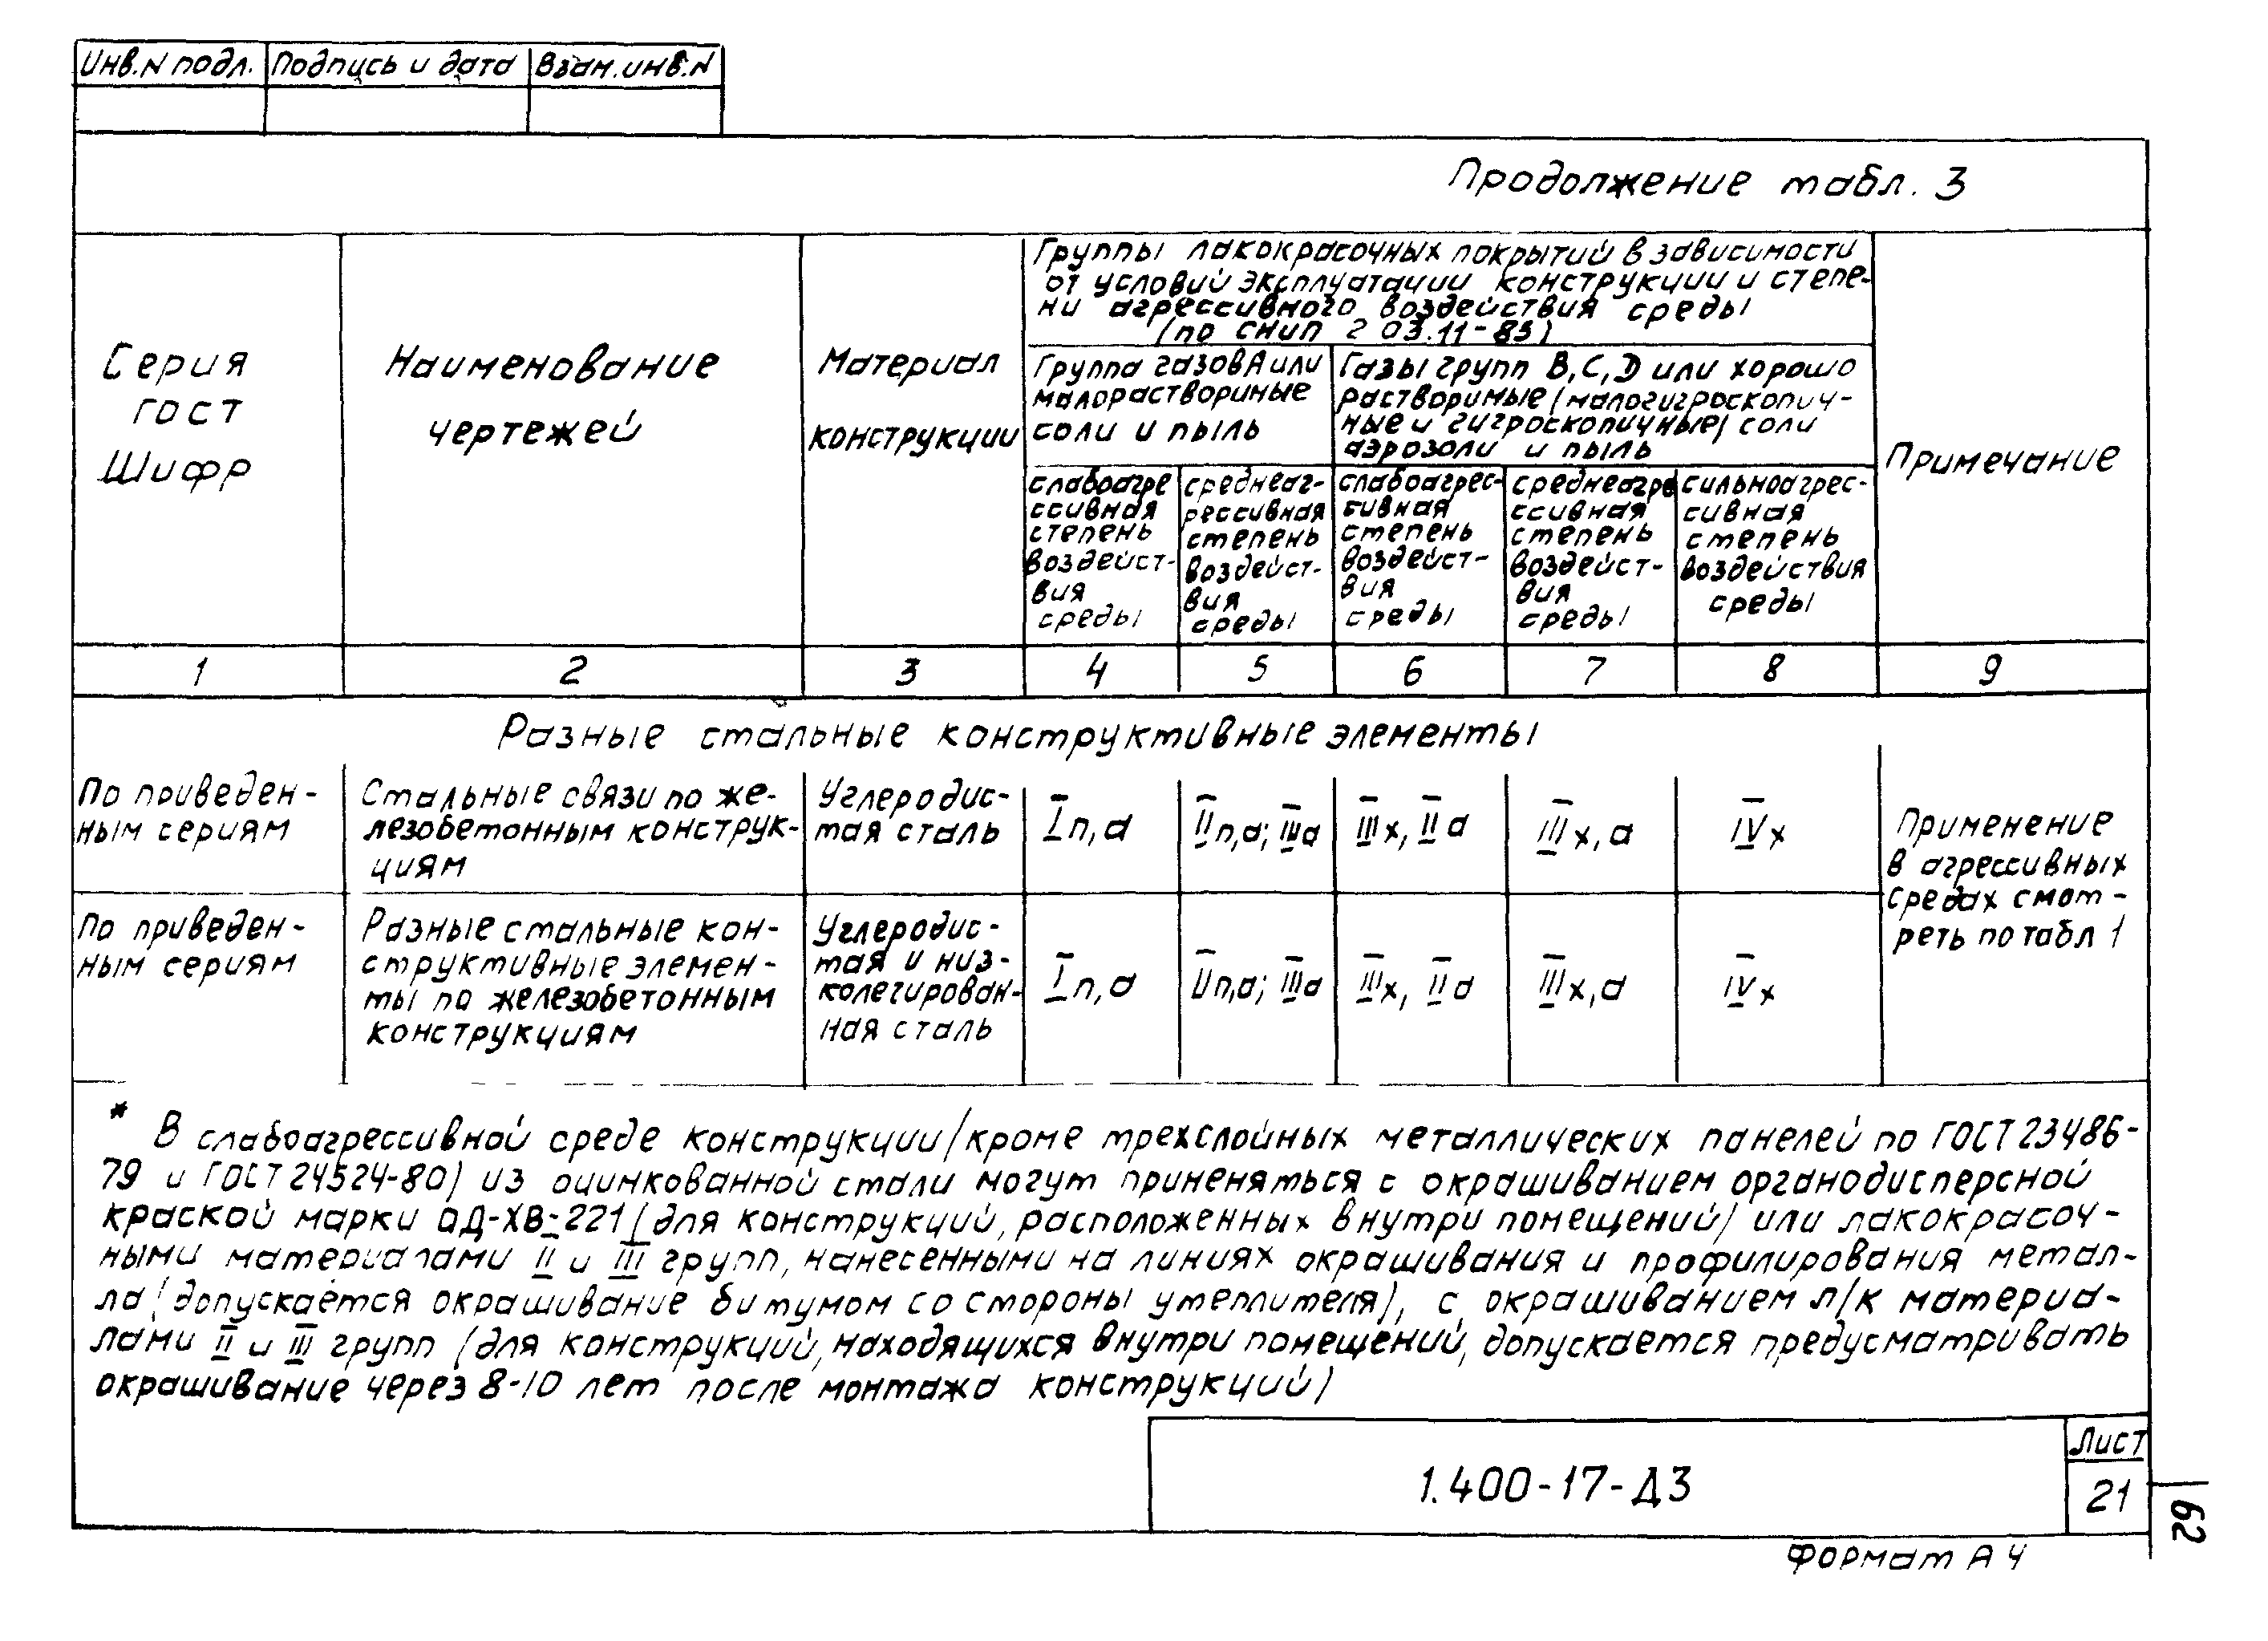 Инв.N подл. Подпись и дата Взам.инв.N
Продолжение табл. 3
Серия
ГОСТ
Шифр
Наименование
чертежей
Материал
конструкции
Группы лакокрасочных покрытий в зависимости
от условий эксплуатации конструкции и степе-
ни агрессивного воздействия среды
(по СНиП 2 03.11-85)
Группа газов А или
малорастворимые
соли и пыль
Газы групп В, С, D или хорошо
растворимые (малогигроскопич-
ные и гигроскопичные) соли
аэрозоли и пыль
слабоагре
ссивная
степень
воздейст-
вия
среды
среднеаг-
рессивная
степень
воздейст-
вия
среды
слабоагрес-
сивная
степень
воздейст-
вия
среды
среднеагре
ссивная
степень
воздейст-
вия
среды
сильноагрес-
сивная
степень
воздействия
среды
Примечание
1 2 3 4 5 6 7 8 9
Разные стальные конструктивные элементы
По приведен-
ным сериям
Стальные связи по же-
лезобетонным конструк-
циям
Углеродис-
тая сталь
I п, а
II п,а; III а
III х, II а
III х, а
IV х
Применение
в агрессивных
средах смот-
реть по табл 1
По приведен-
ным сериям
Разные стальные кон-
структивные элемен-
ты по железобетонным
конструкциям
Углеродис-
тая и низ-
колегирован-
ная сталь
I п, а
II п,а; III а
III х, II а
III х, а
IV х
* В слабоагрессивной среде конструкции (кроме трехслойных металлических панелей по ГОСТ 23486-
79 и ГОСТ 24524-80) из оцинкованной стали могут применяться с окрашиванием органодисперсной
краской марки ОД-ХВ-221 (для конструкций, расположенных внутри помещений) или лакокрасоч-
ными материалами II и III групп, нанесенными на линиях окрашивания и профилирования метал-
ла (допускается окрашивание битумом со стороны утеплителя), с окрашиванием л/к материа-
лами II и III групп (для конструкций, находящихся внутри помещений, допускается предусматривать
окрашивание через 8-10 лет после монтажа конструкций)
1.400-17-Д3
Лист
21
62
Формат А4